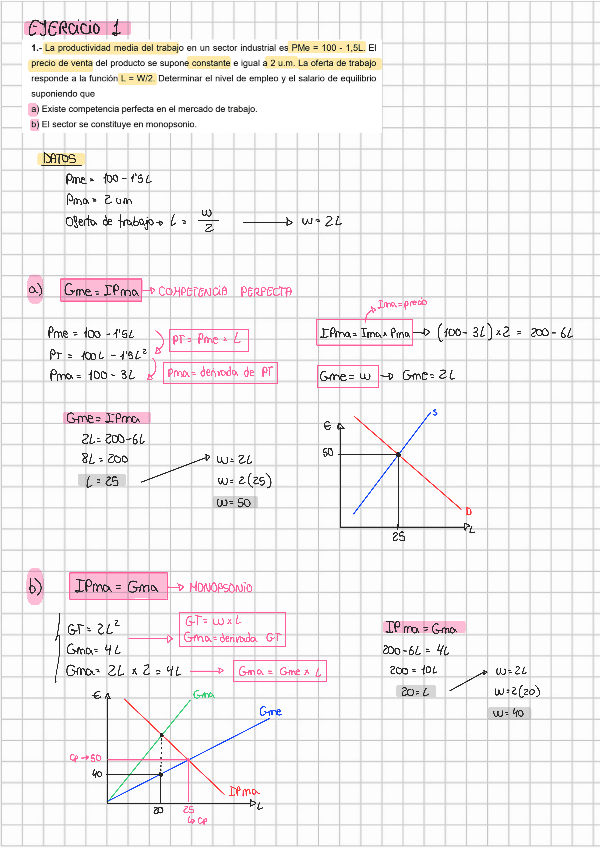 EJERCICIO 1
1.- La productividad media del trabajo en un sector industrial es PMe = 100 - 1,5L. El
precio de venta del producto se supone constante e igual a 2 u.m. La oferta de trabajo
responde a la función L = W/2. Determinar el nivel de empleo y el salario de equilibrio
suponiendo que
a) Existe competencia perfecta en el mercado de trabajo.
b) El sector se constituye en monopsonio.
DATOS
Pme = 100 - 1'5L
Pma = 2 um
Oferta de trabajo → L = w/2 → w = 2L
a) Gme = IPma → COMPETENCIA PERFECTA
Ima = precio
Pme = 100 - 1'5L
PT = 100L - 1'5L²
Pma = 100 - 3L
PT = Pme × L
Pma = derivada de PT
IPma = Ima × Pma → (100 - 3L) × 2 = 200 - 6L
Gme = w → Gme = 2L
Gme = IPma
2L = 200 - 6L
8L = 200
L = 25
w = 2L
w = 2(25)
w = 50
€
S
50
D
25
L
b) IPma = Gma → MONOPSONIO
GT = 2L²
Gma = 4L
Gma = 2L × 2 = 4L
GT = w × L
Gma = derivada GT
Gma = Gme × L
IPma = Gma
200 - 6L = 4L
200 = 10L
20 = L
w = 2L
w = 2(20)
w = 40
€
Gma
Gme
CP → 50
40
IPma
20
25
L
↳ CP